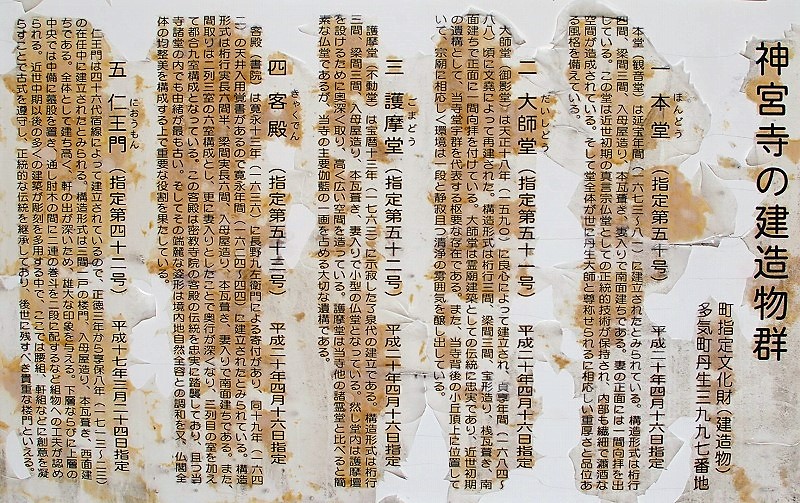 神宮寺の建造物群
町指定文化財（建造物）
多気町丹生三九九七番地
ほんどう
一 本堂（指定第五十号） 平成二十年四月十六日指定
本堂（観音堂）は延宝年間（一六七三〜八一）に建立されたとみられている。構造形式は桁行
四間、梁間三間、入母屋造り、本瓦葺き、妻入りで南面建ちである。妻の正面には一間向拝を出
している。この堂は近世初期の真言宗仏堂としての正統的技術が保持され、内部も繊細で瀟洒な
空間が造成されている。そして堂全体が世に丹生大師と尊称せられるに相応しい重厚さと品位あ
る風格を備えている。
だいしどう
二 大師堂（指定第五十一号） 平成二十年四月十六日指定
大師堂（御影堂）は天正十八年（一五九〇）に良心によって建立され、貞享年間（一六八四〜
八八）頃に文亮によって再建された。構造形式は桁行三間、梁間三間、宝形造り、桟瓦葺き、南
面建ちで正面に一間向拝を付けている。大師堂は霊廟建築としての伝統に忠実であり、近世初期
の遺構として、当寺堂宇群を代表する枢要な存在である。また、当寺背後の小丘頂上に位置して
いて、宗廟に相応しく環境は一段と静寂且つ清浄の雰囲気を醸し出している。
ごまどう
三 護摩堂（指定第五十二号） 平成二十年四月十六日指定
護摩堂（不動堂）は宝暦十三年（一七六三）に示寂した了泉代の建立である。構造形式は桁行
三間、梁間三間、入母屋造り、本瓦葺き、妻入りで小型の仏堂となっている。然し堂内は護摩壇
を設けるために奥深く取り、高く広い空間を造っている。護摩堂は当寺他の諸霊堂と比べると簡
素な仏堂であるが、当寺の主要伽藍の一画を占める大切な遺構である。
きゃくでん
四 客殿（指定第五十三号） 平成二十年四月十六日指定
客殿（書院）は寛永十三年（一六三六）に長野九左衛門による寄付があり、同十九年（一六四
二）の天井入用覚書があるので寛永年間（一六二四〜四四）に建立されたとみられている。構造
形式は桁行実長六間半、梁間実長六間、入母屋造り、本瓦葺き、妻入りで南面建ちである。また、
間取りは二列三室の六室構成とし、更に妻入りとしたことで奥行が深くなり、三列目の室を加え
て都合九室構成となっている。この客殿は密教寺院の客殿の古統を忠実に踏襲しており、且つ当
寺諸堂の内でも由緒が最も古い。そしてその端麗な姿形は境内地自然全容との調和を又、仏閣全
体の均整美を構成する上で重要な役割を果たしている。
におうもん
五 仁王門（指定第四十二号） 平成十七年三月二十四日指定
仁王門は四十六代宿線によって建立されているので、正徳三年から享保八年（一七一三〜二三）
の在任中に建立されたとみられる。構造形式は三間一戸の楼門、入母屋造り、本瓦葺き、西面建
ちである。全体として建ち高く、軒の出が深いため、雄大な印象を与える。下層ならびに上層の
中央では中備に蟇股を置き、通し肘木の間に二連の巻斗を二段に配するなど組物への工夫が認め
られる。近世中期以後の多くの建築が彫刻を多用する中で、ここでは腰組、軒組などに創意を凝
らすことで古式を遵守し、正統的な伝統を継承しており、後世に残すべき貴重な楼門といえる。